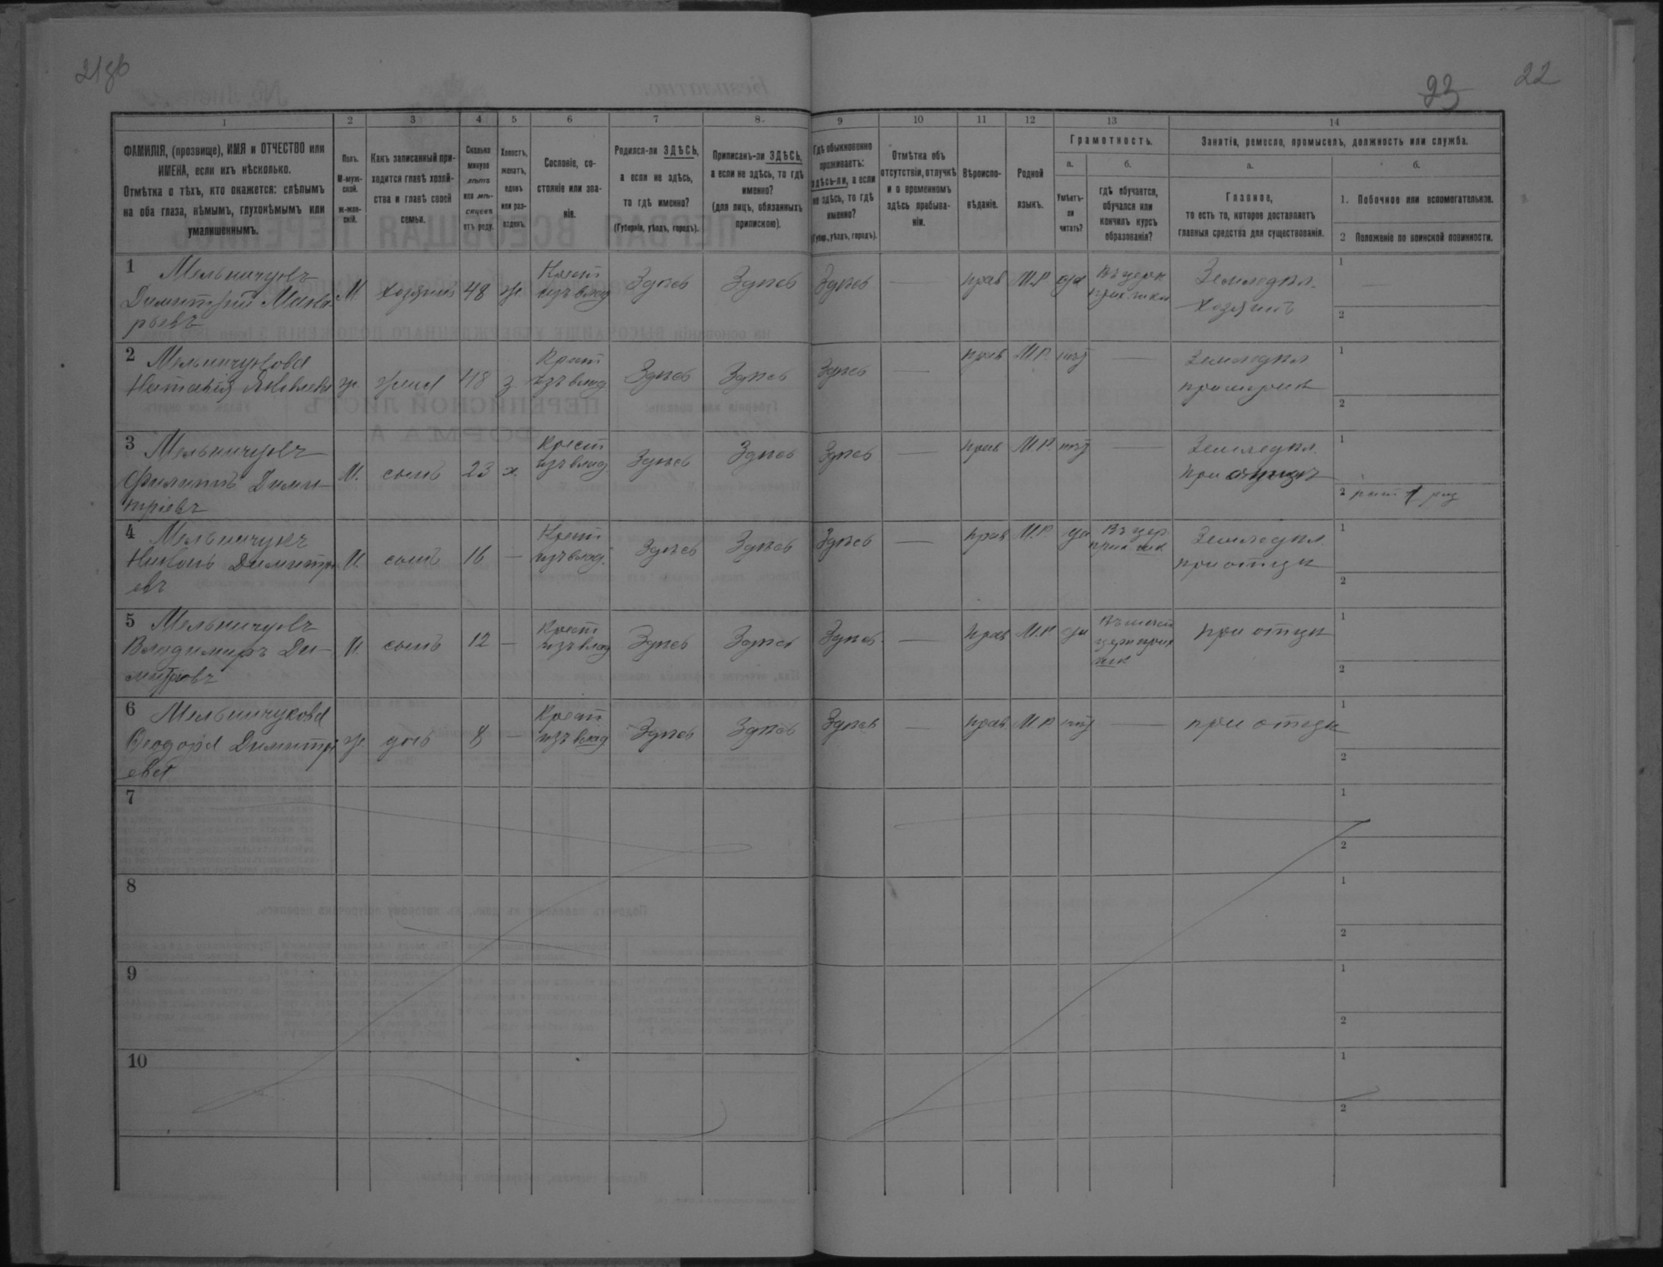 21об
23
22
1
2
3
4
5
6
7
8.
9
10
11
12
13
14
ФАМИЛІЯ, (прозвище), ИМЯ и ОТЧЕСТВО или
ИМЕНА, если ихъ нѣсколько.
Отмѣтка о тѣхъ, кто окажется: слѣпымъ
на оба глаза, нѣмымъ, глухонѣмымъ или
умалишеннымъ.
Полъ.
М-муж-
ской.
ж-жен-
скій.
Какъ записанный при-
ходится главѣ хозяй-
ства и главѣ своей
семьи.
Сколько
минуло
лѣтъ
или мѣ-
сяцевъ
отъ роду.
Холостъ,
женатъ,
вдовъ
или раз-
веденъ.
Сословіе, со-
стояніе или зва-
ніе.
Родился-ли ЗДѢСЬ,
а если не здѣсь,
то гдѣ именно?
(Губернія, уѣздъ, городъ).
Приписанъ-ли ЗДѢСЬ,
а если не здѣсь, то гдѣ
именно?
(для лицъ, обязанныхъ
припискою).
Гдѣ обыкновенно
проживаетъ:
здѣсь-ли, а если
не здѣсь, то гдѣ
именно?
(Губер., уѣздъ, городъ).
Отмѣтка объ
отсутствіи, отлучкѣ
и о временномъ
здѣсь пребыва-
ніи.
Вѣроиспо-
вѣданіе.
Родной
языкъ.
Грамотность.
а.
б.
Умѣетъ-
ли
читать?
гдѣ обучается,
обучался или
кончилъ курсъ
образованія?
Занятіе, ремесло, промыселъ, должность или служба.
а.
б.
Главное,
то есть то, которое доставляетъ
главныя средства для существованія.
1. Побочное или вспомогательное.
2 Положеніе по воинской повинности.
1 Мельничукъ
Димитрій Мака-
рьевъ
М хозяинъ 48 ж
Крест
изъ влад
Здѣсь Здѣсь Здѣсь — прав М.Р да
Въ церк
прих. школ
Земледѣл.
Хозяинъ
1 —
2
2 Мельничукова
Наталія Яковлева
ж. жена 48 з
Крест
изъ влад
Здѣсь Здѣсь Здѣсь — прав М.Р. нѣт —
Земледѣл
при мужѣ
1
2
3 Мельничукъ
Филиппъ Дими-
тріевъ
М. сынъ 23 х.
Крест
изъ влад
Здѣсь Здѣсь Здѣсь — прав М.Р. нѣт —
Земледѣл
при отцѣ
1
2
4 Мельничукъ
Никонъ Димитрі
евъ
М сынъ 16 —
Крест
изъ влад.
Здѣсь Здѣсь Здѣсь — прав М.Р. да
Въ цер.
прих шк
Земледѣл.
при отцѣ
1
2
5 Мельничукъ
Владимиръ Ди-
митріевъ
М. сынъ 12 —
Крест
изъ влад
Здѣсь Здѣсь Здѣсь — прав М.Р да
церк прих
шк
при отцѣ
1
2
6 Мельничукова
Ѳеодора Димитрі
ева
ж дочь 8 —
Крест
изъ влад
Здѣсь Здѣсь Здѣсь — прав М.Р нѣт —
при отцѣ
1
2
7
1
2
8
1
2
9
1
2
10
1
2